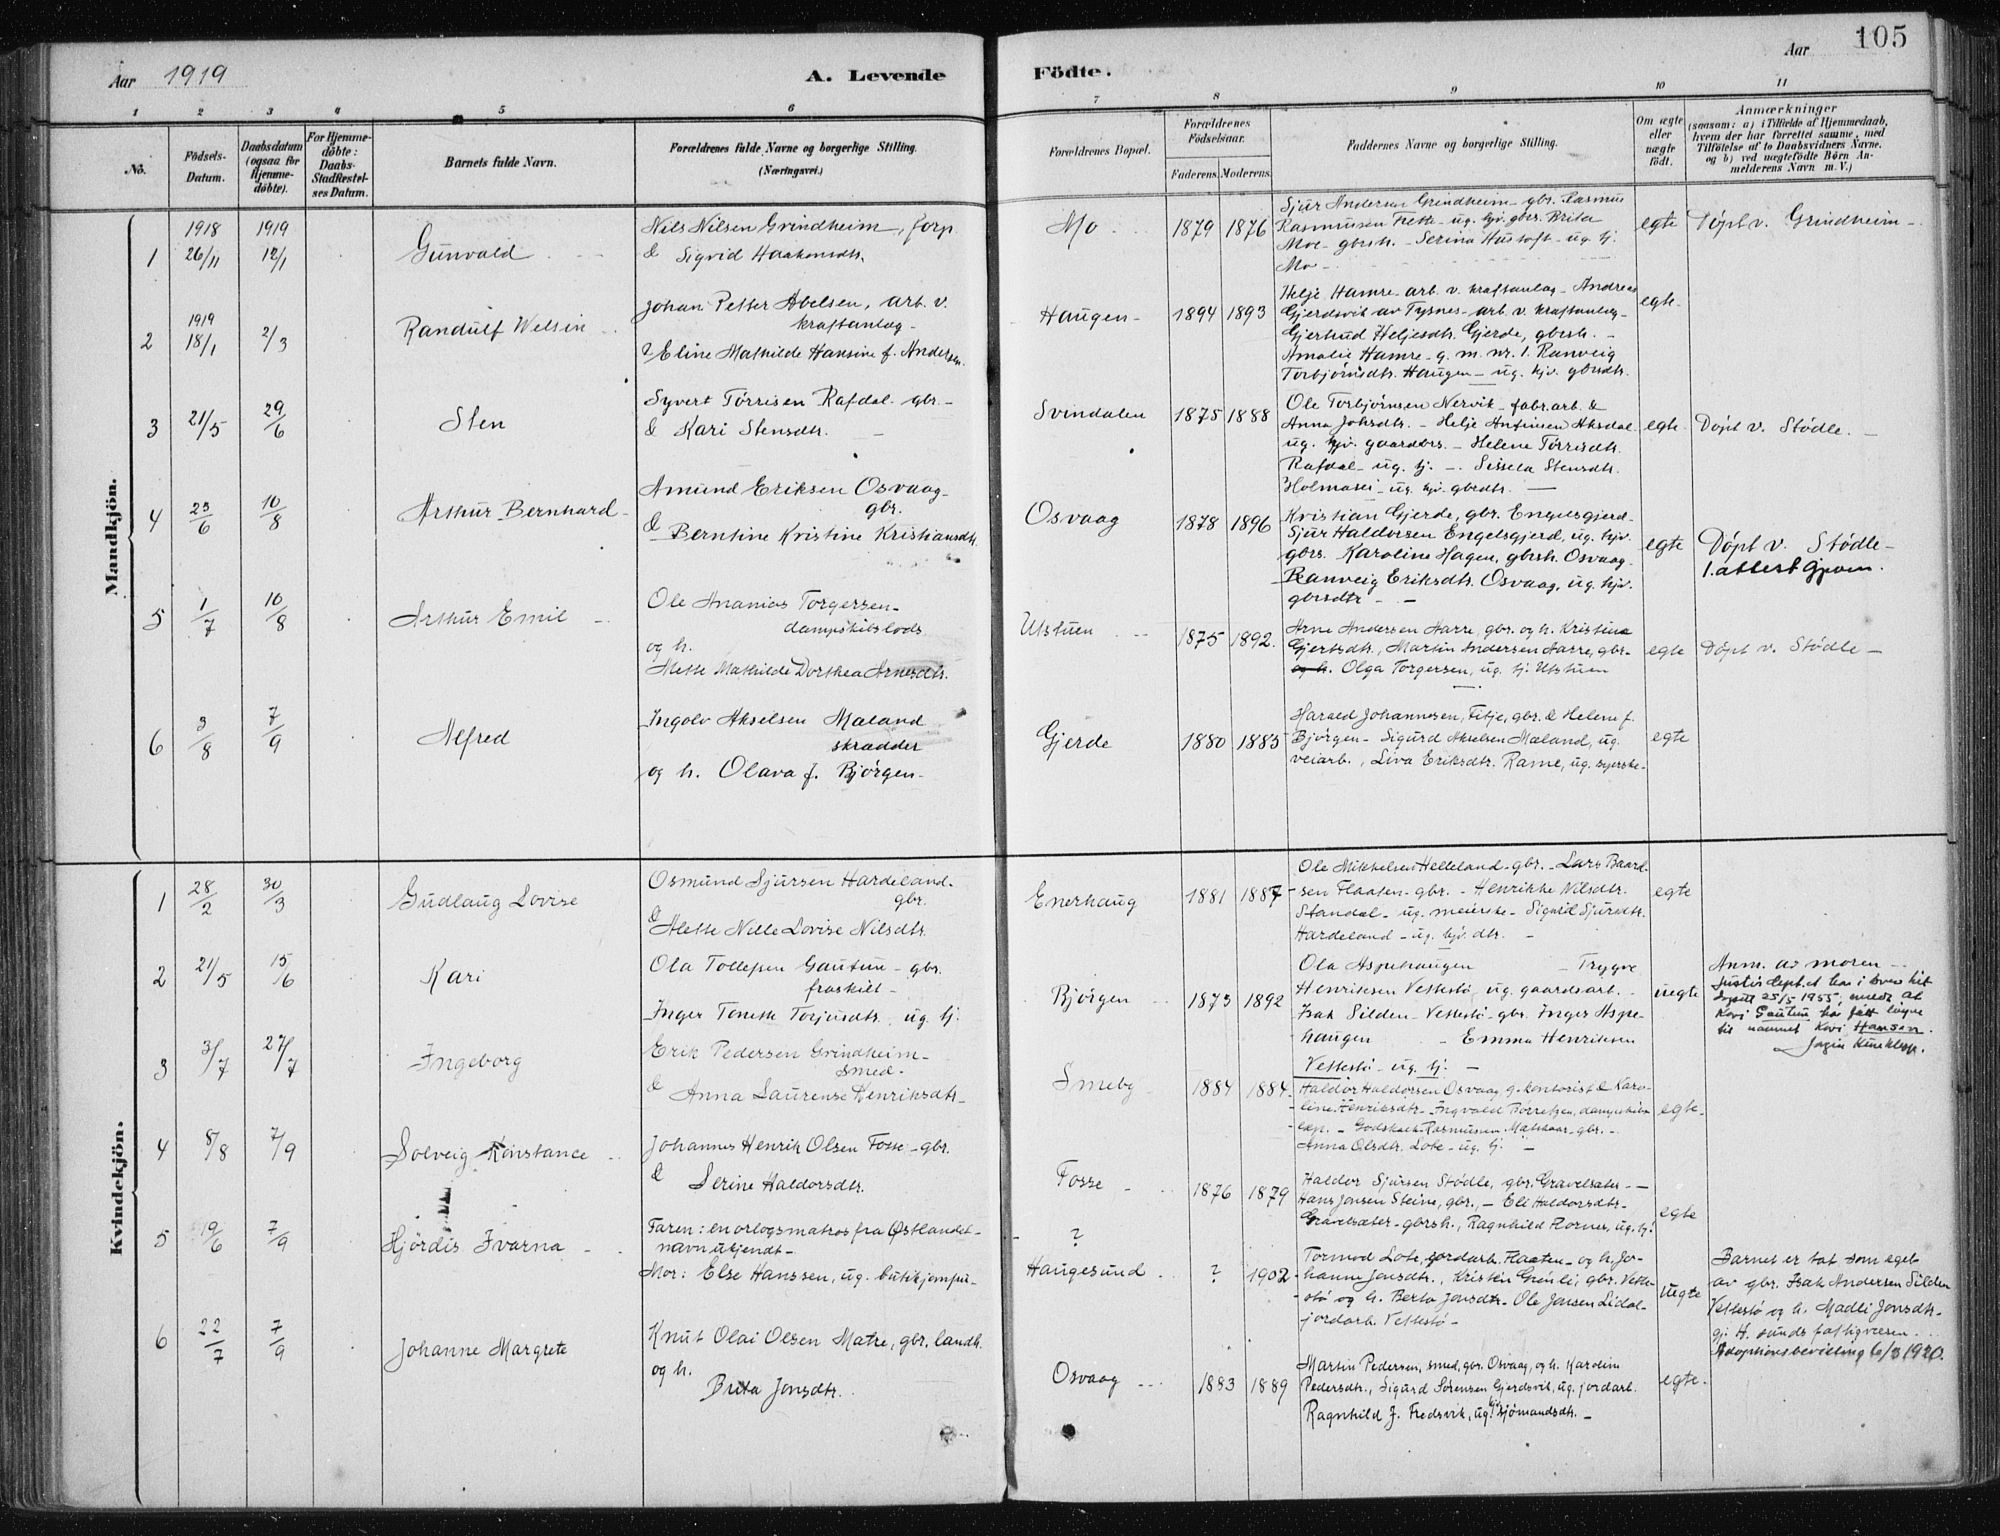 Aar 1919
A. Levende Födte.
Aar 105
1 2 3 4 5 6 7 8 9 10 11
No.
Födsels-Datum.
Daabsdatum (ogsaa for Hjemme-döbte).
For Hjemme-döbte: Daabs-Stadfæstel-ses Datum.
Barnets fulde Navn.
Forældrenes fulde Navne og borgerlige Stilling. (Næringsvei.)
Forældrenes Bopæl.
Forældrenes Födselsaar.
Faderens. Moderens.
Faddernes Navne og borgerlige Stilling.
Om ægte eller uægte födt.
Anmærkninger
(saasom: a) i Tilfælde af Hjemmedaab, hvem der har forrettet samme, med Tilföielse af to Daabsvidners Navne, og b) ved uægtefödte Börn An-melderens Navn m. V.)
Mandkjön.
1 1918 26/11 1919 12/1 Gunvald
Nils Nilsen Grindheim, forp.
& Sigvid Haakonsdtr.
Mo 1879 1876
Sjur Andersen Grindheim gbr. Rasmus
Rasmussen Frette - ug. hjv. gbrs. Brita
Moe - gbrsh. - Serina Hustoft - ug. tj.
Mo -
egte Döpt v. Grindheim -
2 1919 18/1 2/3 Randulf Welsin
Johan Petter Abelsen, arb. v.
kraftanlæg -
& Eline Mathilde Hansine f. Andersen.
Haugen - 1894 1893
Helje Hamre - arb. v. kraftanlæg - Andreas
Gjerdsvik av Tysnes - arb. v. kraftanlæg -
Gjertrud Heljesdtr. Gjerde, gbrsh. -
Amalie Hamre - g. m. nr. 1. Ranveig
Torbjörnsdtr. Haugen - ug. hjv. gbrsdtr.
egte -
3 21/5 29/6 Sten
Syvert Törrisen Rafdal - gbr. -
& Kari Stensdtr. -
Svindalen 1875 1888
Ole Torbjörnsen Nervik - fabr.arb. &
Anna Johsdtr. - Helje Antinsen Aksdal
ug. hjv. gaardbrs. - Helene Törrisdtr.
Rafdal - ug. tj. - Sissela Stensdtr.
Holmasei - ug. hjv. gbrdtr. -
egte - Döpt v. Stödle. -
4 23/6 10/8 Arthur Bernhard -
Amund Eriksen Osvaag -
gbr.
& Berntine Kristine Kristiansdtr.
Osvaag 1878 1896
Kristian Gjerde, gbr. Engelsgjerd -
Sjur Haldorsen Engelsgjerd, ug. hjv.
gbrs. Karoline Hagen, gbrsh. Osvaag -
Ranveig Eriksdtr. Osvaag, ug. hjv.
gbrsdtr - -
egte Döpt v. Stödle -
1. attest
5 1/7 10/8 Arthur Emil
Ole Ananias Torgersen -
dampskibslods
og h.
Mette Mathilde Dorthea Arnesdtr.
Utstuen 1875 1892.
Arne Andersen Aarre, gbr. og h. Kristine
Gjertsdtr., Martin Andersen Aarre, gbr. -
og h. Olga Torgersen, ug. tj. Utstuen
egte Döpt v. Stödle -
6 3/8 7/9 Alfred
Ingolv Akselsen Mæland
skrædder
og h. Olava f. Björgen -
Gjerde 1880 1885
Harald Johannesen, Fitje, gbr. & Helene f.
Björgen - Sigurd Akselsen Mæland, ug.
veiarb., Liva Eriksdtr. Rame, ug. syerske -
egte
Kvindekjön.
1 28/2 30/3 Gudlaug Lovise
Osmund Sjursen Hardeland -
gbr.
& Mette Nille Lovise Nilsdtr.
Enerhaug 1881 1887
Ole Mikkelsen Helleland - gbr. - Lars Baard-
sen Flaaten - gbr. - Henrikke Nilsdtr.
Standal - ug. meierske - Sigvid Sjursdtr.
Hardeland - ug. hjv. dtr. -
egte
2 21/5 15/6 Kari
Ola Tollefsen Gautun - gbr.
fraskilt -
Inger Tonette Torjusdtr., ug. tj.
Björgen 1873 1892
Ola Aspehaugen - Trygve
Henriksen Vettestö, ug. gaardsarb. -
Isak Silden - Vettestö - gbr. Inger Aspe-
haugen - Emma Henriksen
Vettestö - ug. tj. -
uegte
Anm. av moren -
Justisdept. et har i brev hit
25/5 1955, meddt at
Kari Gautun har fått løyve
til namnet Kari Hansen.
3 3/7 27/7 Ingeborg
Erik Pedersen Grindheim -
smed -
& Anna Laurense Henriksdtr -
Smeby - 1884 1884
Haldor Haldorsen Osvaag g. kontorist & Karo-
line Henriksdtr - Ingvald Törresen, dampskibs-
exp. - Godskalk Rasmussen Matskaar - gbr. -
Anna Olsdtr. Lote - ug. tj. -
egte -
4 8/8 7/9 Solveig Konstance
Johannes Henrik Olsen Fosse - gbr.
& Serine Haldorsdtr.
Fosse - 1876 1879
Haldor Sjursen Stödle, gbr. Gravelsæter - -
Hans Jonsen Steine, gbr., - Eli Haldorsdtr. -
Gravelsæter - gbrsh., Ragnhild Rornes, ug. tj.
egte
5 19/6 7/9 Hjördis Ivarna -
Faren: en orlogsmatros fra Östlandet -
navn ukjendt -
Mor: Else Hanssen, ug. butikjomfru -
?
Haugesund ? 1902
Tormod Lote, jordarb. Flaaten - og h. Jo-
hanne Jonsdtr., Kristen Grönli, gbr. Vette-
stö og h. Berta Jonsdtr - Ole Jonsen Lidal -
jordarb. Vettestö -
uegte
Barnet er tat som eget
av gbr. Isak Andersen Silden
Vettestö og h. Madli Jonsdtr -
gj. H. sunds fattigvæsen
Adoptionsbevilling 6/3 1920.
6 22/7 7/9 Johanne Margrete
Knut Olai Olsen Matre, gbr. landh.
og h.
Brita Jonsdtr.
Osvaag 1883 1889
Martin Pedersen, smed, gbr. Osvaag, og h. Karoline
Pedersdtr., Sigurd Sörensen Gjerdsvik, ug. jordarb.
Ragnhild J. Fredsvik, ug. sjömandsdtr. -
egte -